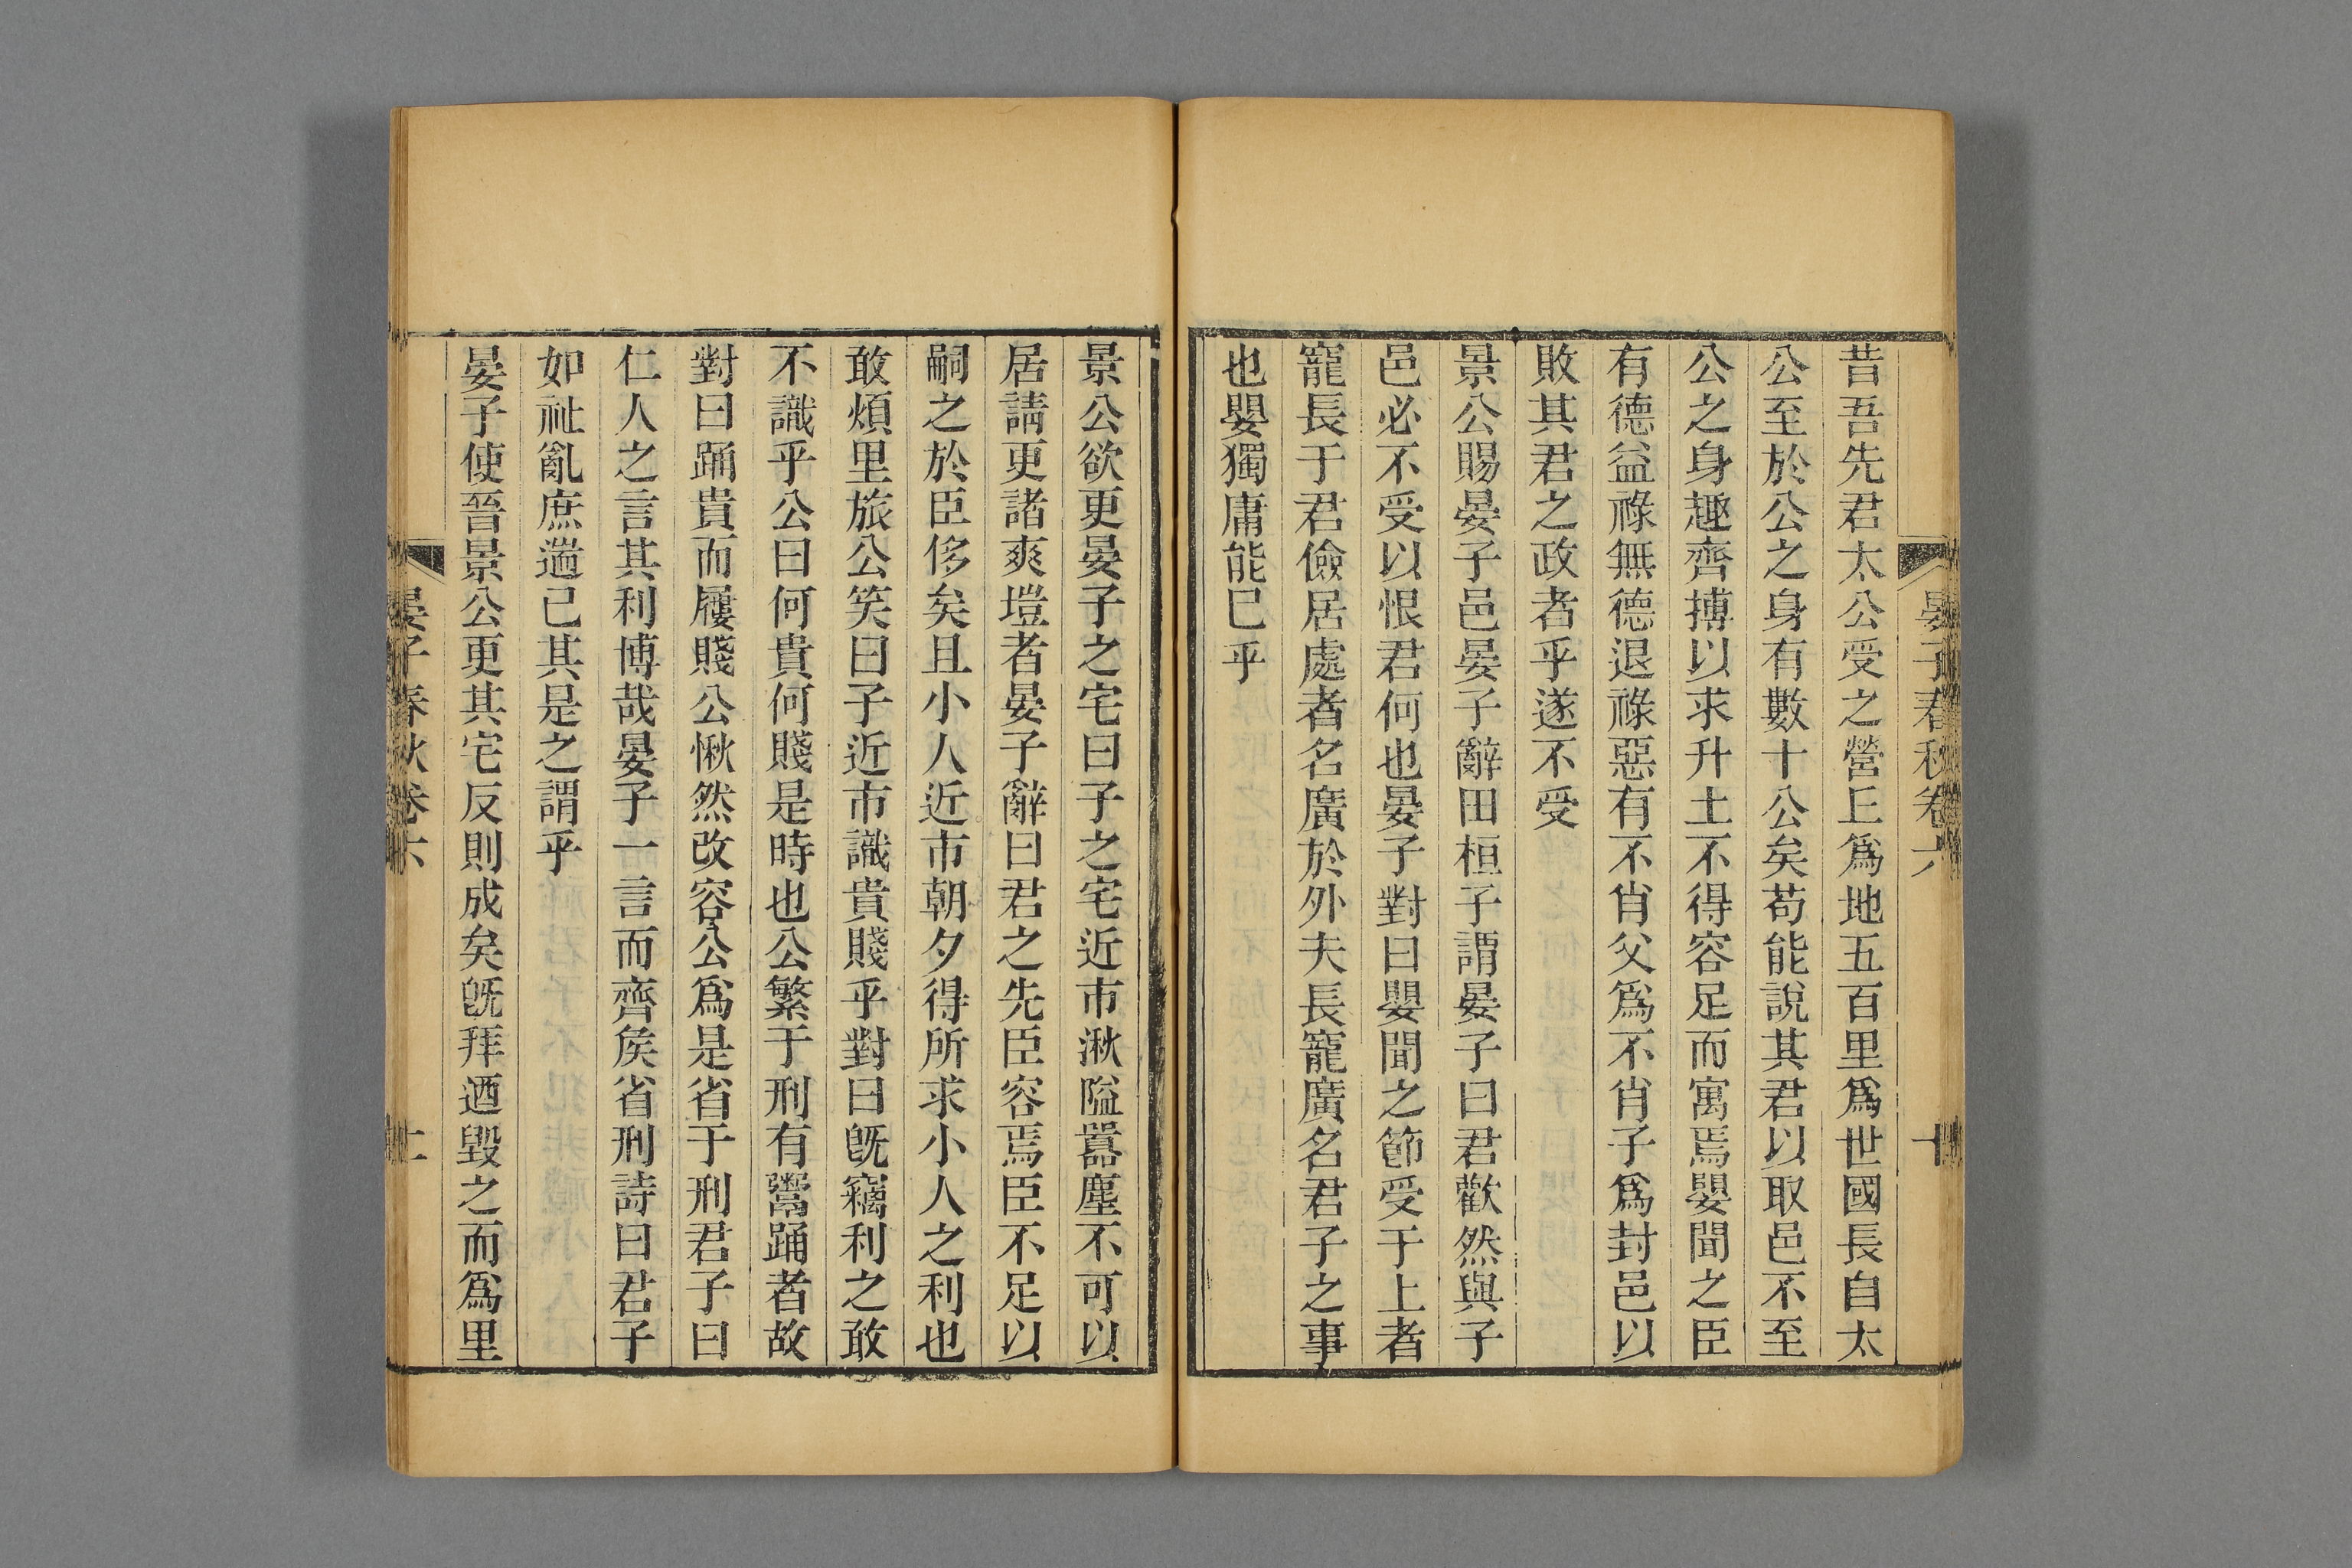 晏子春秋卷六
十
昔吾先君太公受之營丘爲地五百里爲世國長自太
公至於公之身有數十公矣苟能說其君以取邑不至
公之身趣齊搏以求升土不得容足而寓焉嬰聞之臣
有德益祿無德退祿惡有不肖父爲不肖子爲封邑以
敗其君之政者乎遂不受
景公賜晏子邑晏子辭田桓子謂晏子曰君歡然與子
邑必不受以恨君何也晏子對曰嬰聞之節受于上者
寵長于君儉居處者名廣於外夫長寵廣名君子之事
也嬰獨庸能已乎
景公欲更晏子之宅曰子之宅近市湫隘囂塵不可以
居請更諸爽塏者晏子辭曰君之先臣容焉臣不足以
嗣之於臣侈矣且小人近市朝夕得所求小人之利也
敢煩里旅公笑曰子近市識貴賤乎對曰旣竊利之敢
不識乎公曰何貴何賤是時也公繁于刑有鬻踊者故
對曰踊貴而屨賤公愀然改容公爲是省于刑君子曰
仁人之言其利博哉晏子一言而齊矦省刑詩曰君子
如祉亂庶遄已其是之謂乎
晏子使晉景公更其宅反則成矣旣拜迺毀之而爲里
晏子春秋卷六
十一